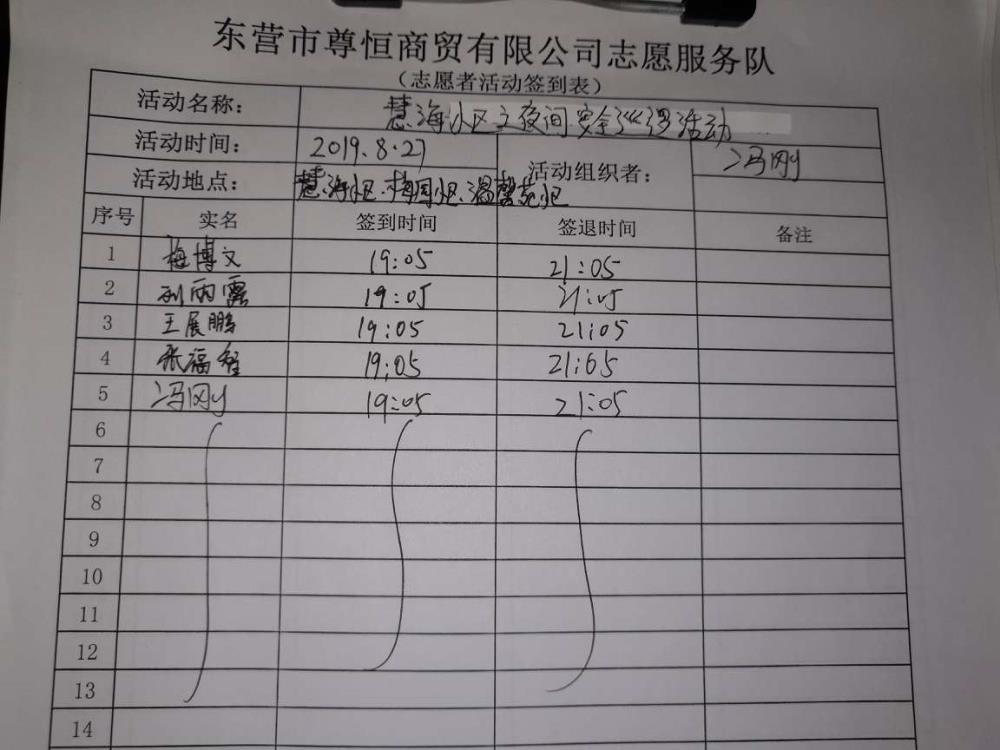 东营市尊恒商贸有限公司志愿服务队
（志愿者活动签到表）
活动名称： 慧海小区之夜间安全巡逻活动
活动时间： 2019.8.27 活动组织者： 冯刚
活动地点： 慧海小区.梅园小区.温馨苑小区
序号 实名 签到时间 签退时间 备注
1 梅博文 19:05 21:05
2 刘雨露 19:05 21:05
3 王展鹏 19:05 21:05
4 张福 19:05 21:05
5 冯刚 19:05 21:05
6
7
8
9
10
11
12
13
14